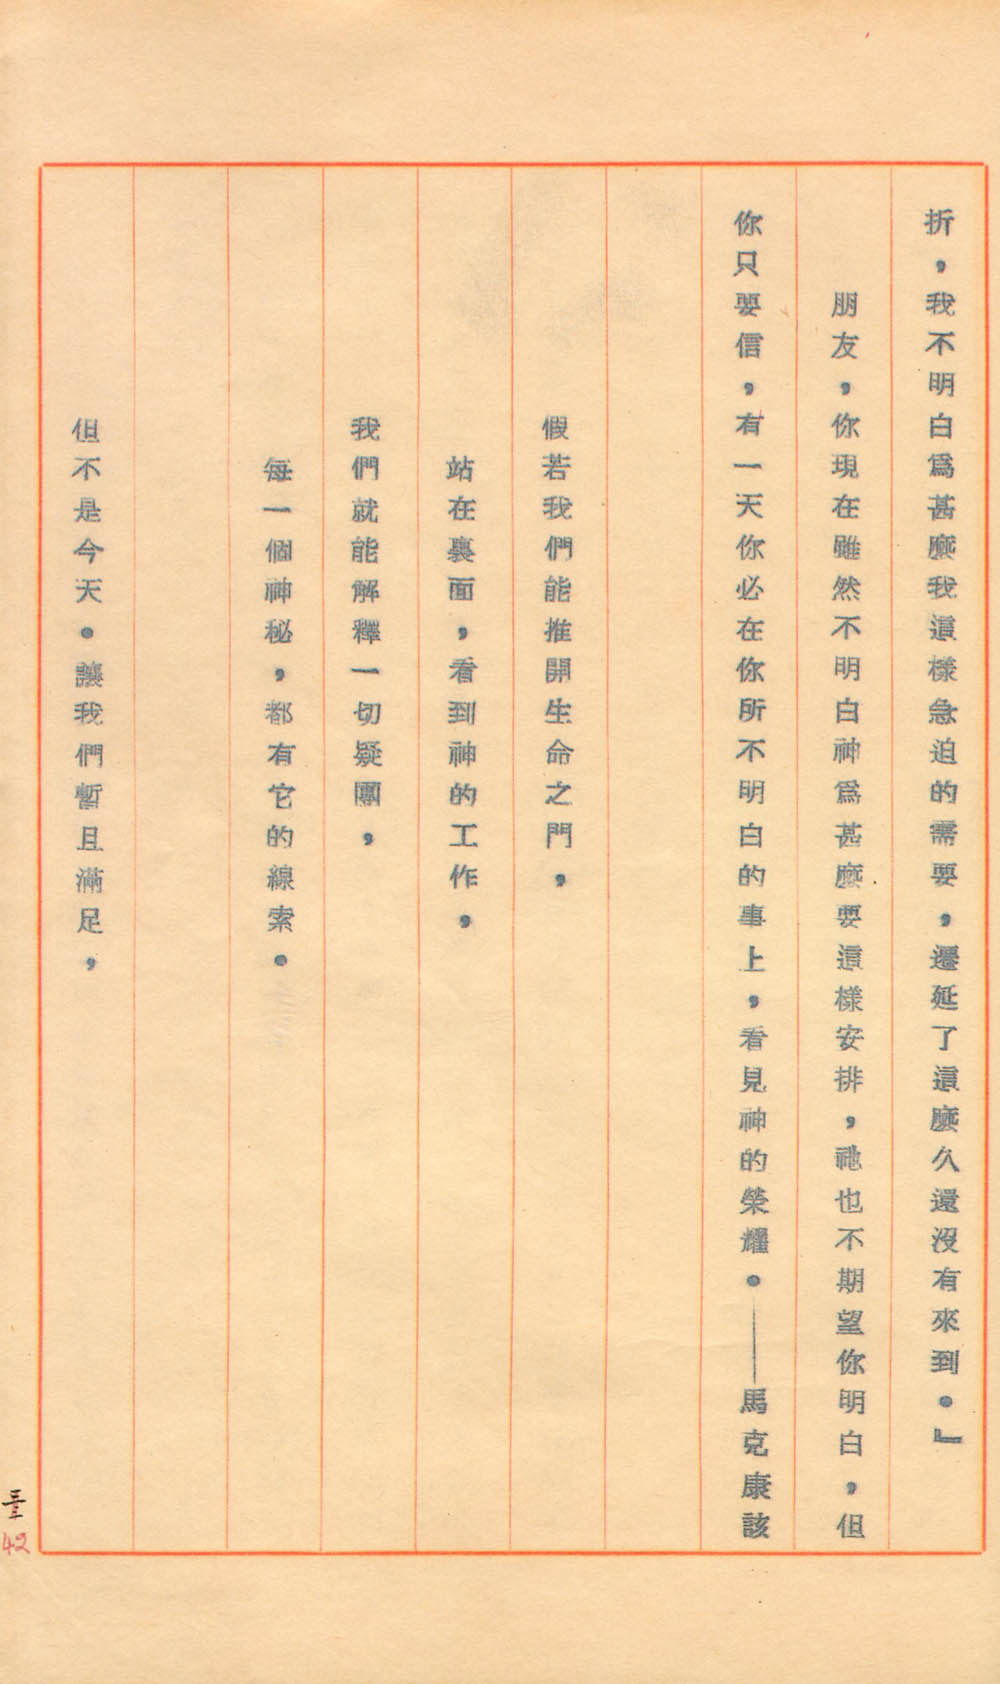 折，我不明白爲甚麼我這樣急迫的需要，遷延了這麼久還沒有來到。』
朋友，你現在雖然不明白神爲甚麼要這樣安排，祂也不期望你明白，但
你只要信，有一天你必在你所不明白的事上，看見神的榮耀。——馬克康該
假若我們能推開生命之門，
站在裏面，看到神的工作，
我們就能解釋一切疑團，
每一個神秘，都有它的線索。
但不是今天。讓我們暫且滿足，
42